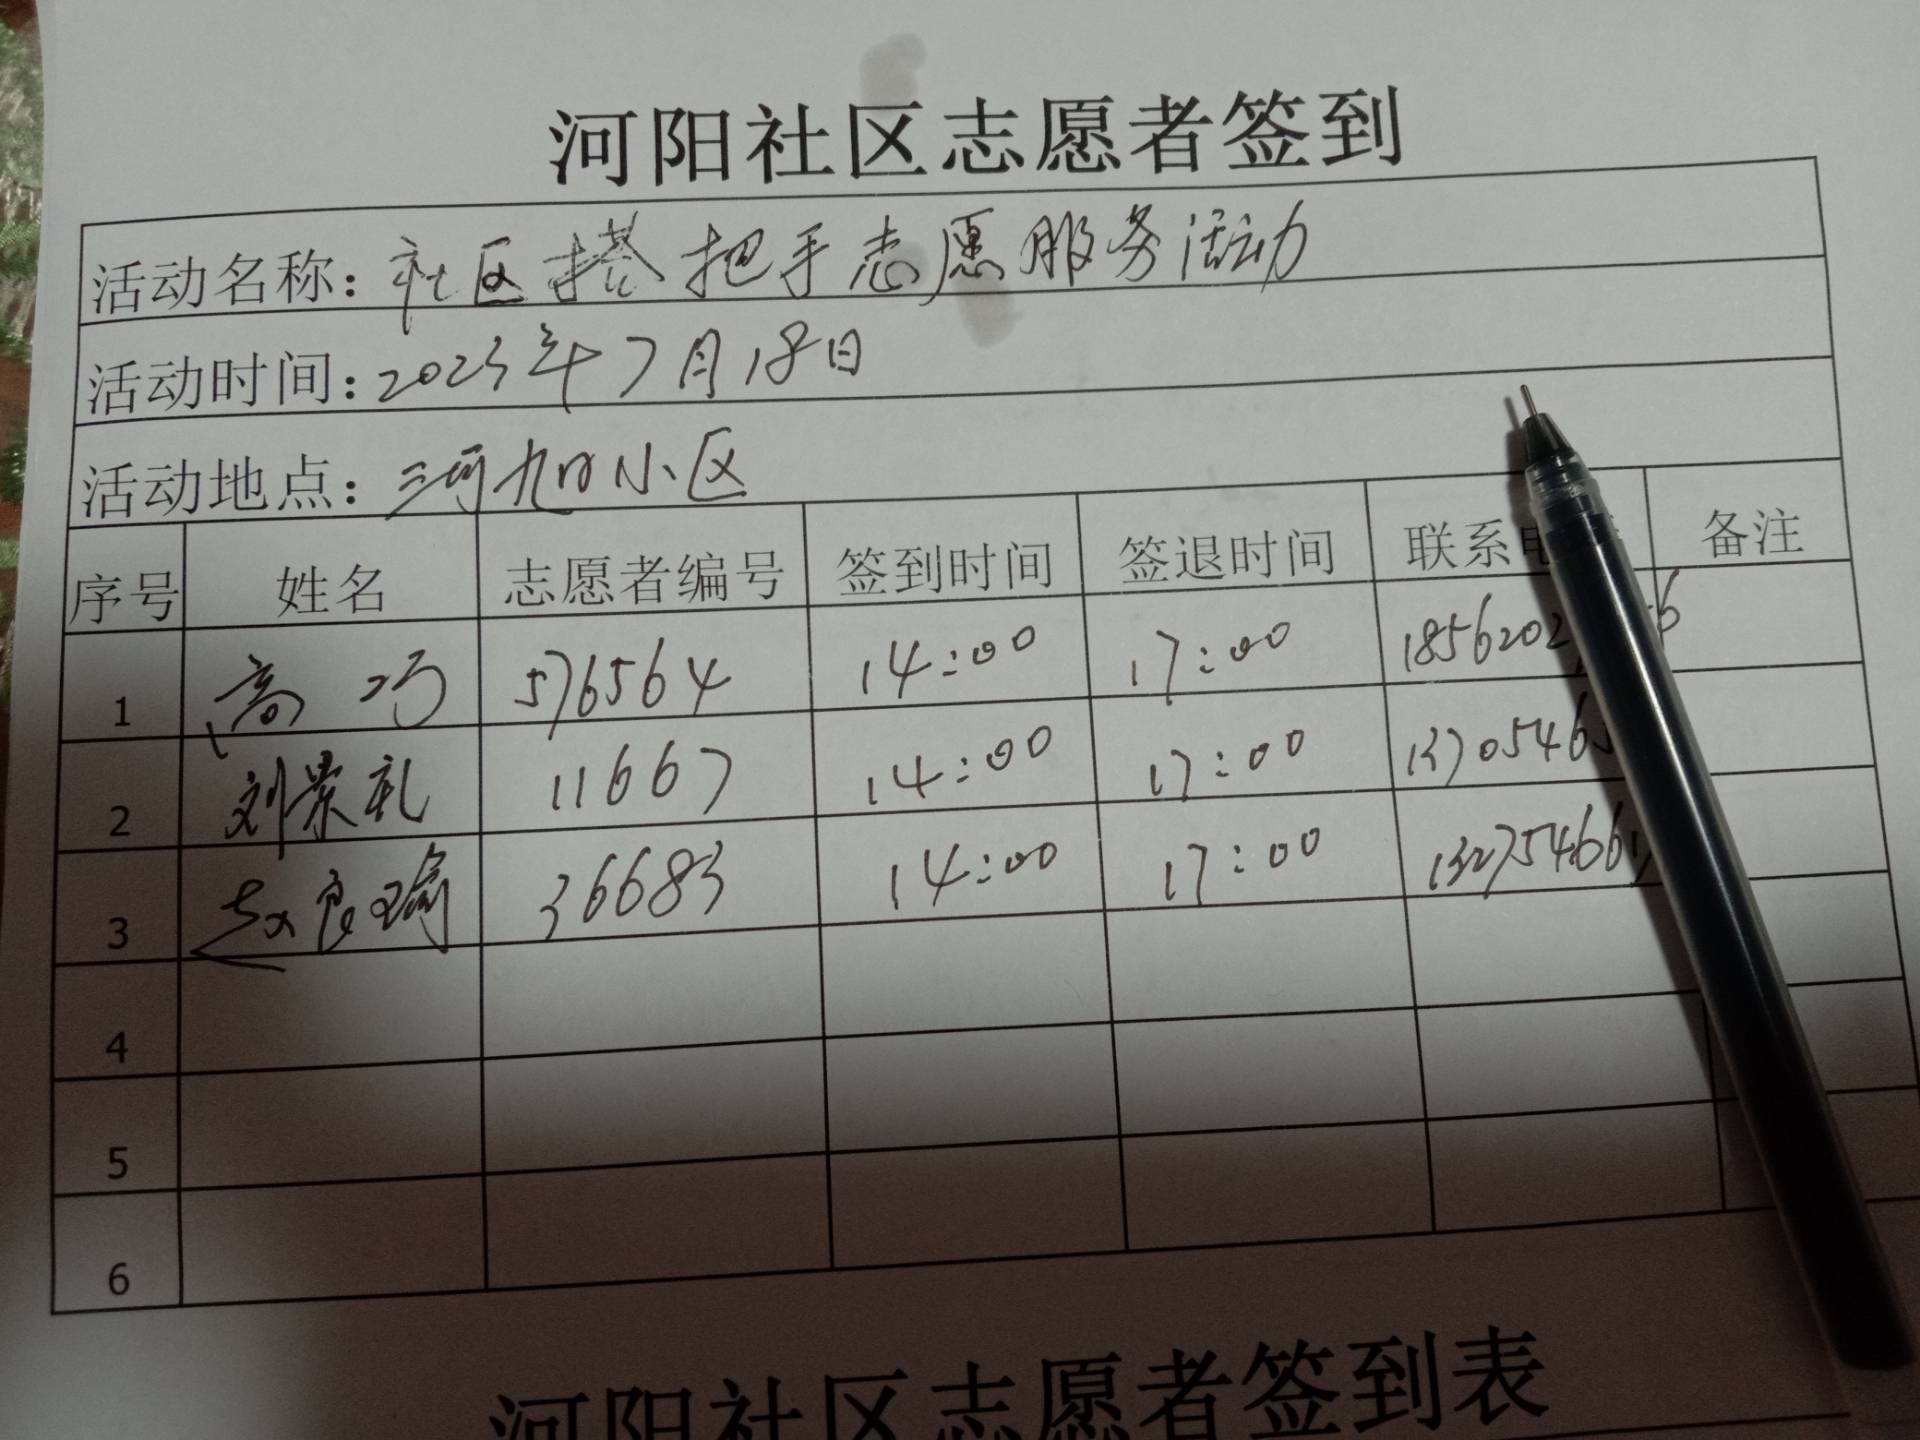 河阳社区志愿者签到
活动名称：社区搭把手志愿服务活动
活动时间：2023年7月18日
活动地点：三河旭日小区
序号 姓名 志愿者编号 签到时间 签退时间 联系 备注
1 高巧 576564 14:00 17:00 1856202
2 刘景礼 11667 14:00 17:00 13705463
3 赵良瑜 36683 14:00 17:00 132754661
4
5
6
河阳社区志愿者签到表